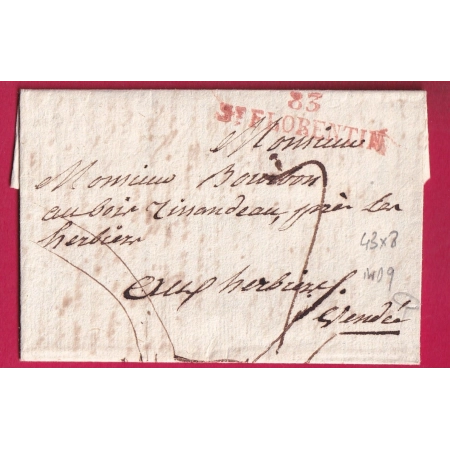 83
ST FLORENTIN
Monsieur
Monsieur Bourbon
au bois Tissandeau, près les
herbiers
aux herbiers
Vendée
43x8